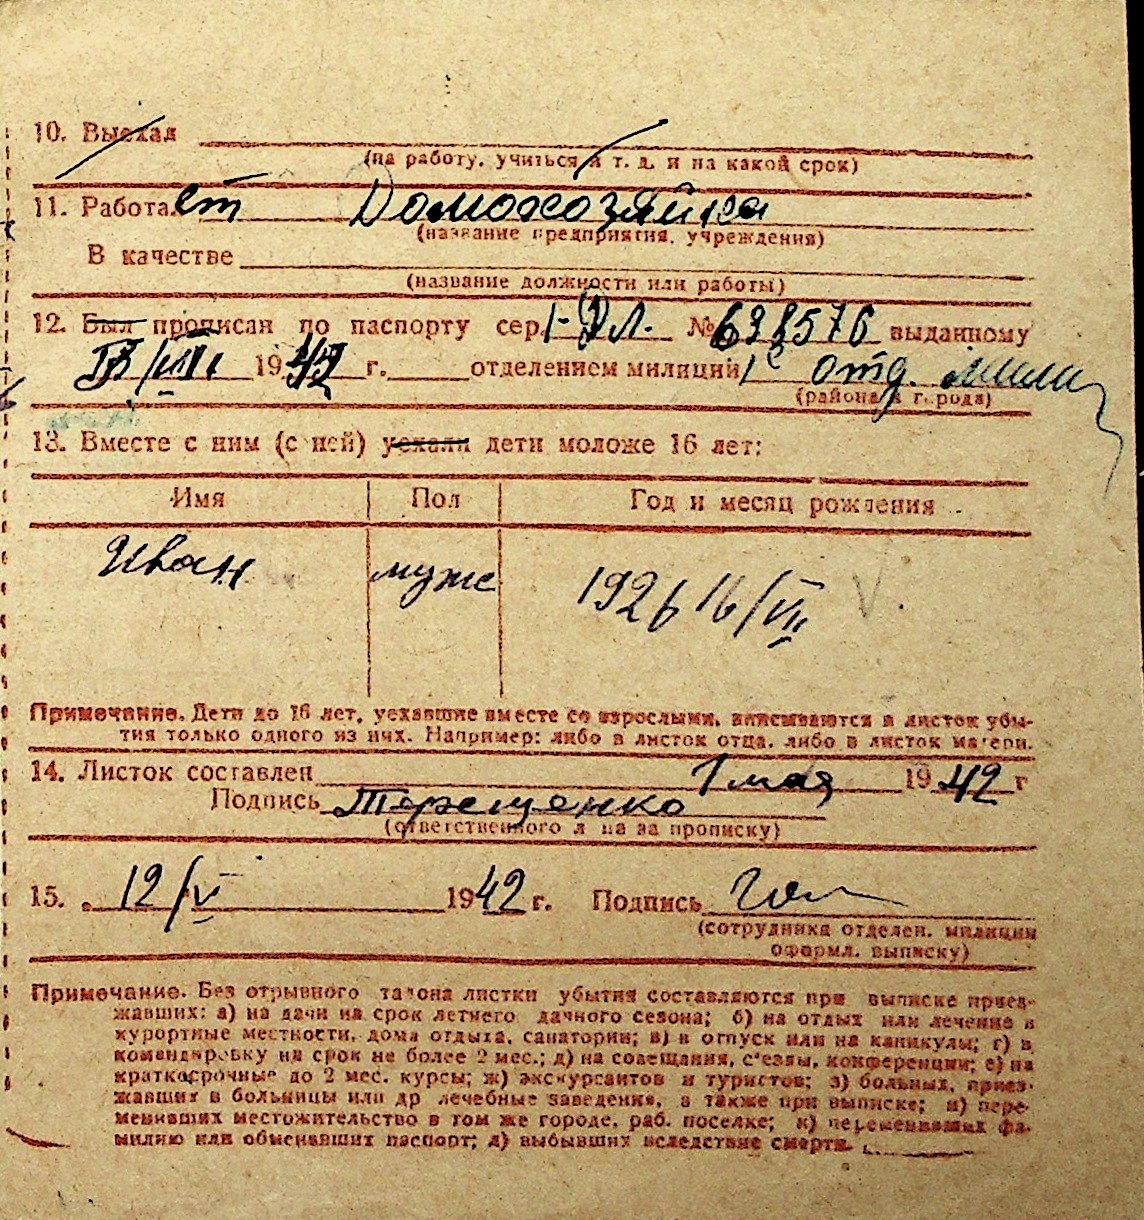 10. Выехал
(на работу, учиться и т. д. и на какой срок)
11. Работает Домохозяйка
(название предприятия, учреждения)
В качестве
(название должности или работы)
12. Был прописан по паспорту сер. 1-ДЛ. № 698576 выданному
19 г. отделением милиции 1е отд. мили
(района и города)
13. Вместе с ним (с ней) уехали дети моложе 16 лет:
Имя Пол Год и месяц рождения
Иван муж 1926 16/VII
Примечание. Дети до 16 лет, уехавшие вместе со взрослыми, вписываются в листок убы-
тия только одного из них. Например: либо в листок отца, либо в листок матери.
14. Листок составлен 1 мая 1942 г
Подпись Терещенко
(ответственного л ца за прописку)
15. 12/V 1942 г. Подпись
(сотрудника отделен. милиции
оформл. выписку)
Примечание. Без отрывного талона листки убытия составляются при выписке приез-
жавших: а) на дачи на срок летнего дачного сезона; б) на отдых или лечение в
курортные местности, дома отдыха, санатории; в) в отпуск или на каникулы; г) в
командировку на срок не более 2 мес.; д) на совещания, с'езды, конференции; е) на
краткосрочные до 2 мес. курсы; ж) экскурсантов и туристов; з) больных, приез-
жавших в больницы или др лечебные заведения, а также при выписке; и) пере-
менивших местожительство в том же городе, раб. поселке; к) переменивших фа-
милию или обменявших паспорт; л) выбывших вследствие смерти.